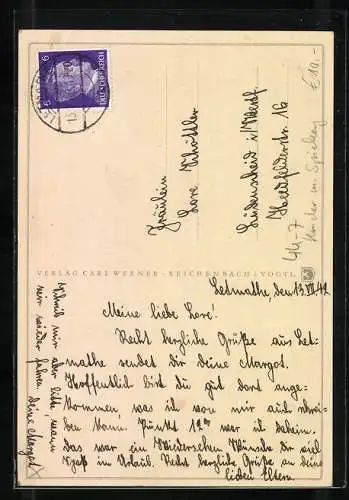 6 6
DEUTSCHES REICH
Fräulein
Lore
Lüdenscheid i/Westf.
Heedfelderstr. 16
€ 10.-
44-7
Kinder m. Spielzeug
VERLAG CARL WERNER · REICHENBACH i. VOGTL.
Letmathe, den 13. VII. 42
Meine liebe Lore.
Recht herzliche Grüße aus Let-
mathe sendet dir deine Margot.
Hoffentlich bist du gut dort ange-
kommen, was ich von mir auch schrei-
ben kann. Punkt war ich daheim.
Das war ein Wiedersehen. Wünsche dir viel
Spaß im Urlaub. Recht herzliche Grüße an deine
lieben Eltern.
Schreib mir aber bitte wann
wir wieder fahren. Deine Margot